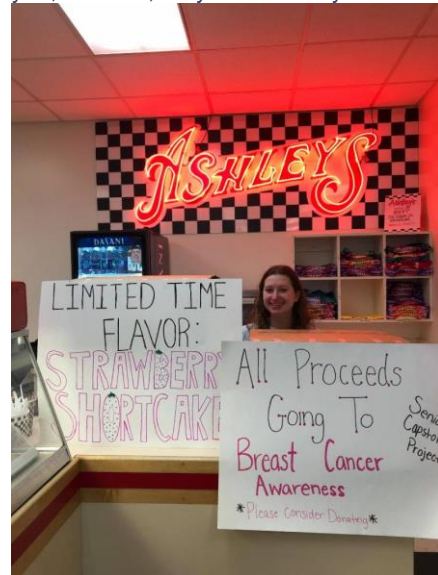 ASHLEYS
DASANI
Ashleys
LIMITED TIME
FLAVOR:
STRAWBERRY
SHORTCAKE
All Proceeds
Going To
Breast Cancer
Awareness
*Please Consider Donating*
Senior
Capstone
Project